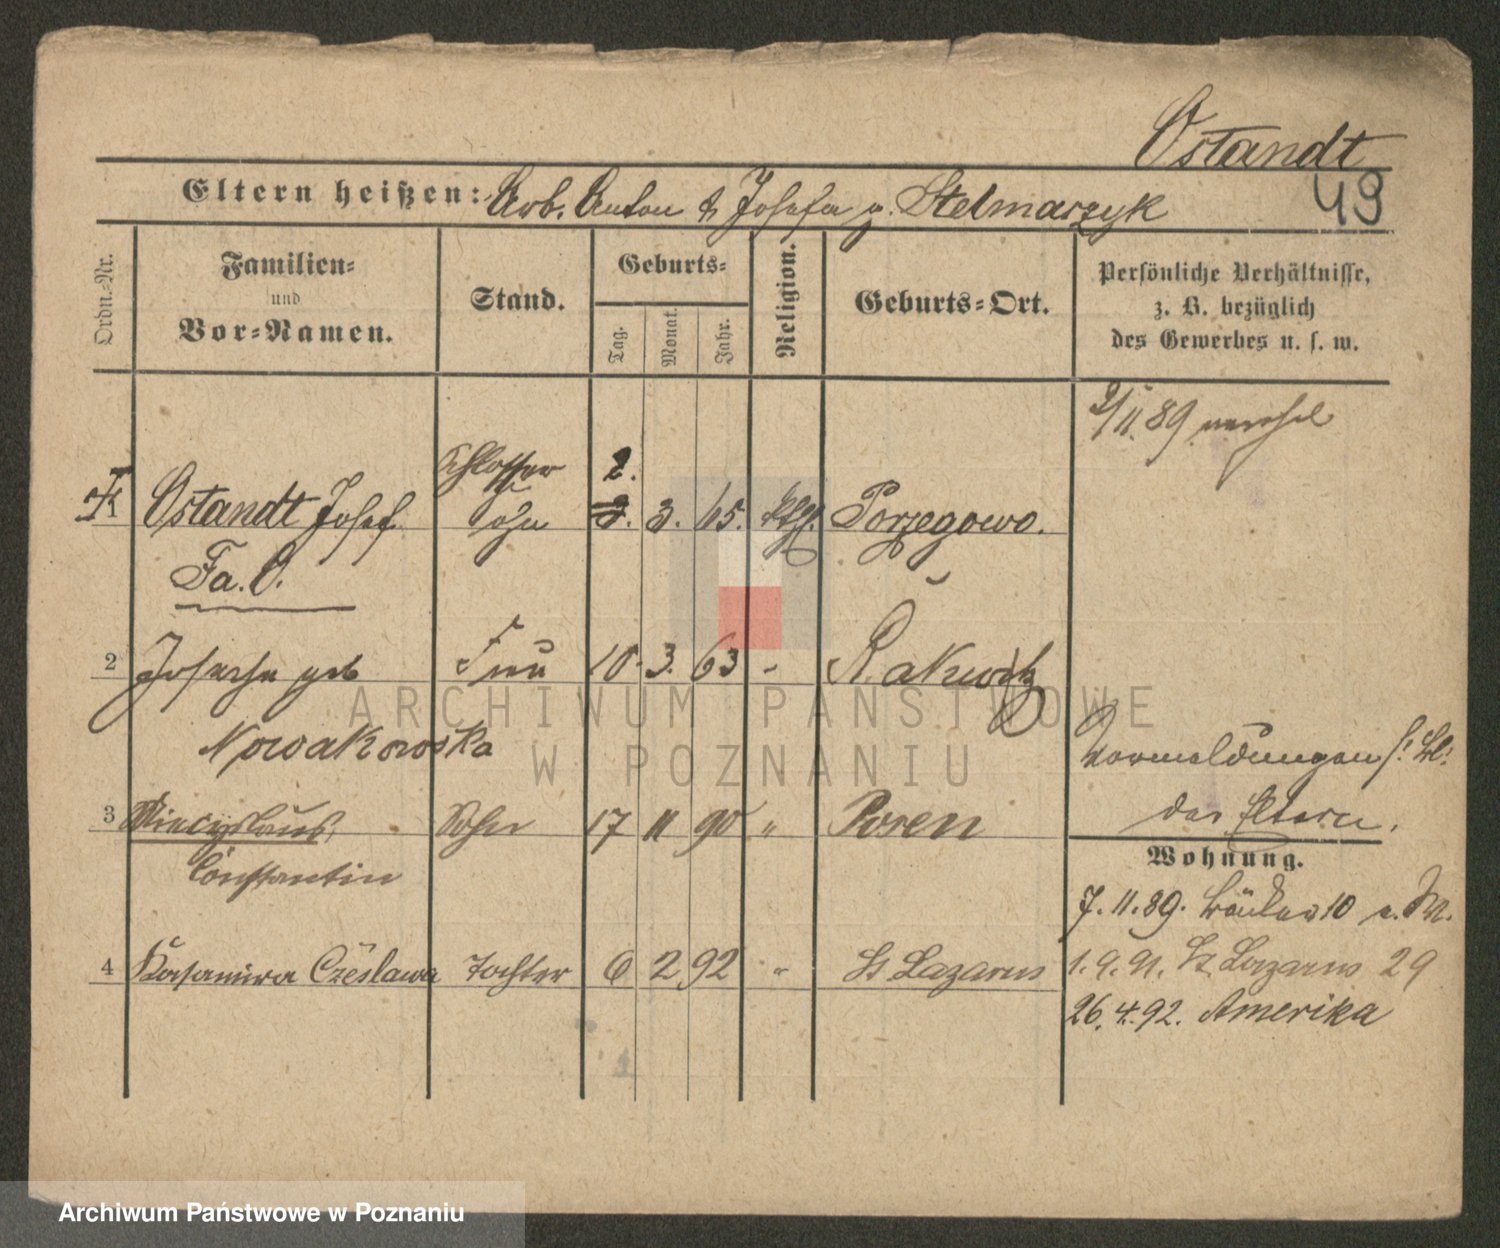 Ostandt
49
Eltern heißen: Arb. Anton & Josefa g. Stelmarzyk
Ordn.-Nr.
Familien-
und
Vor-Namen.
Stand.
Geburts-
Tag.
Monat.
Jahr.
Religion.
Geburts-Ort.
Persönliche Verhältnisse,
z. B. bezüglich
des Gewerbes u. s. w.
2/11.89
Schlosser
2.
Ostandt Josef 3. 3. 65. kth. Porzegowo.
Fa. O.
2 Josepha geb Frau 10. 3. 63 - Rakwitz
Nowakowska
Vormeldungen s. Bl.
der Eltern.
3 Miecyslaus Sohn 17 11 90 " Posen
Constantin
Wohnung.
7.11.89. Bäcker 10
4 Kasamira Czeslawa Tochter 6 2 92 " St Lazarus
1.9.91. St. Lazarus 29
26.4.92. Amerika
ARCHIWUM PAŃSTWOWE
W POZNANIU
Archiwum Państwowe w Poznaniu